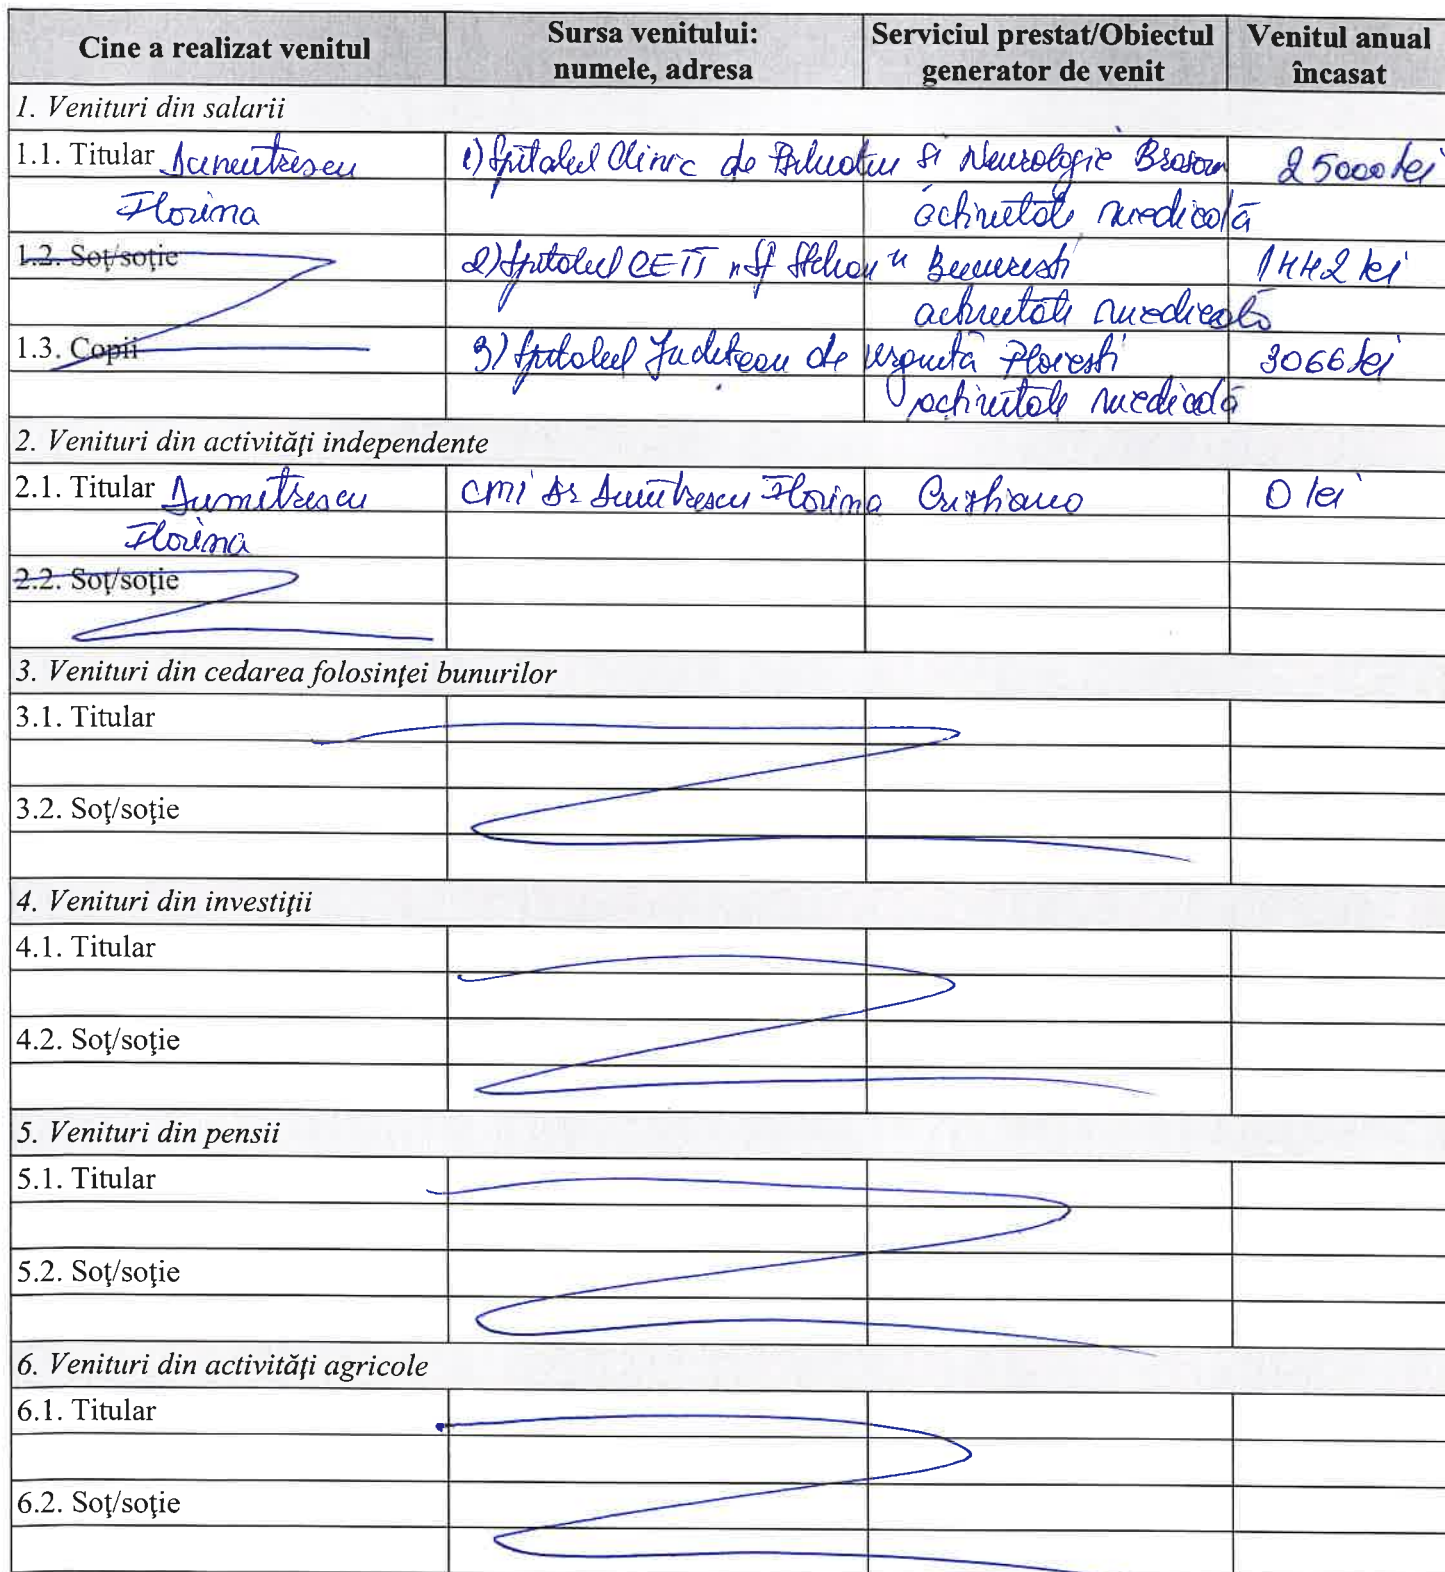 Cine a realizat venitul
Sursa venitului:
numele, adresa
Serviciul prestat/Obiectul
generator de venit
Venitul anual
încasat
1. Venituri din salarii
1.1. Titular Dumitrescu 1) Spitalul Clinic de Psihiatrie si Neurologie Brasov 25000 lei
Florina activitate medicală
1.2. Soţ/soţie 2) Spitalul CETT "Sf Stefan" Bucuresti 1442 lei
activitate medicală
1.3. Copii 3) Spitalul Judetean de urgentă Ploiesti 3066 lei
activitate medicală
2. Venituri din activităţi independente
2.1. Titular Dumitrescu CMI Dr Dumitrescu Florina Cristiana 0 lei
Florina
2.2. Soţ/soţie
3. Venituri din cedarea folosinţei bunurilor
3.1. Titular
3.2. Soţ/soţie
4. Venituri din investiţii
4.1. Titular
4.2. Soţ/soţie
5. Venituri din pensii
5.1. Titular
5.2. Soţ/soţie
6. Venituri din activităţi agricole
6.1. Titular
6.2. Soţ/soţie